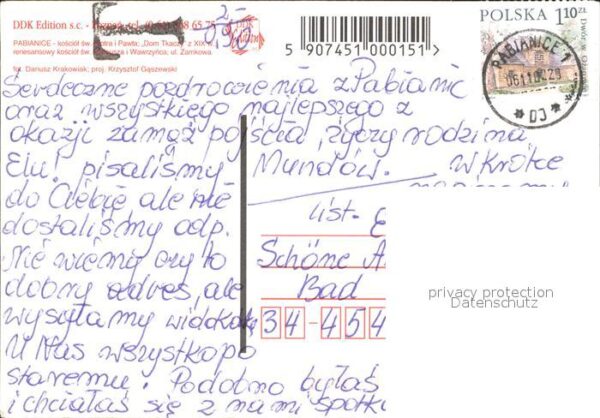 DDK Edition s.c. - Poznań, tel. (0-61) 868 65 75
PABIANICE - kościół św. Piotra i Pawła; „Dom Tkaczy” z XIX w.
renesansowy kościół św. Mateusza i Wawrzyńca; ul. Zamkowa.
fot. Dariusz Krakowiak; proj. Krzysztof Gąszewski
5 907451 000151
POLSKA 1,10 ZŁ
PABIANICE 1
Serdeczne pozdrowienia z Pabianic
oraz wszystkiego najlepszego z
okazji zamąż pójścia życzy rodzina
Mundów.
Elu! pisaliśmy
do Ciebie ale nie
dostaliśmy odp.
Nie wiemy czy to
dobry adres, ale
wysyłamy widokókę
U Nas wszystko po
staremu. Podobno byłaś
i chciałaś się z nami spotk
w krótce
list.
Schöne A
Bad
34-454
privacy protection
Datenschutz